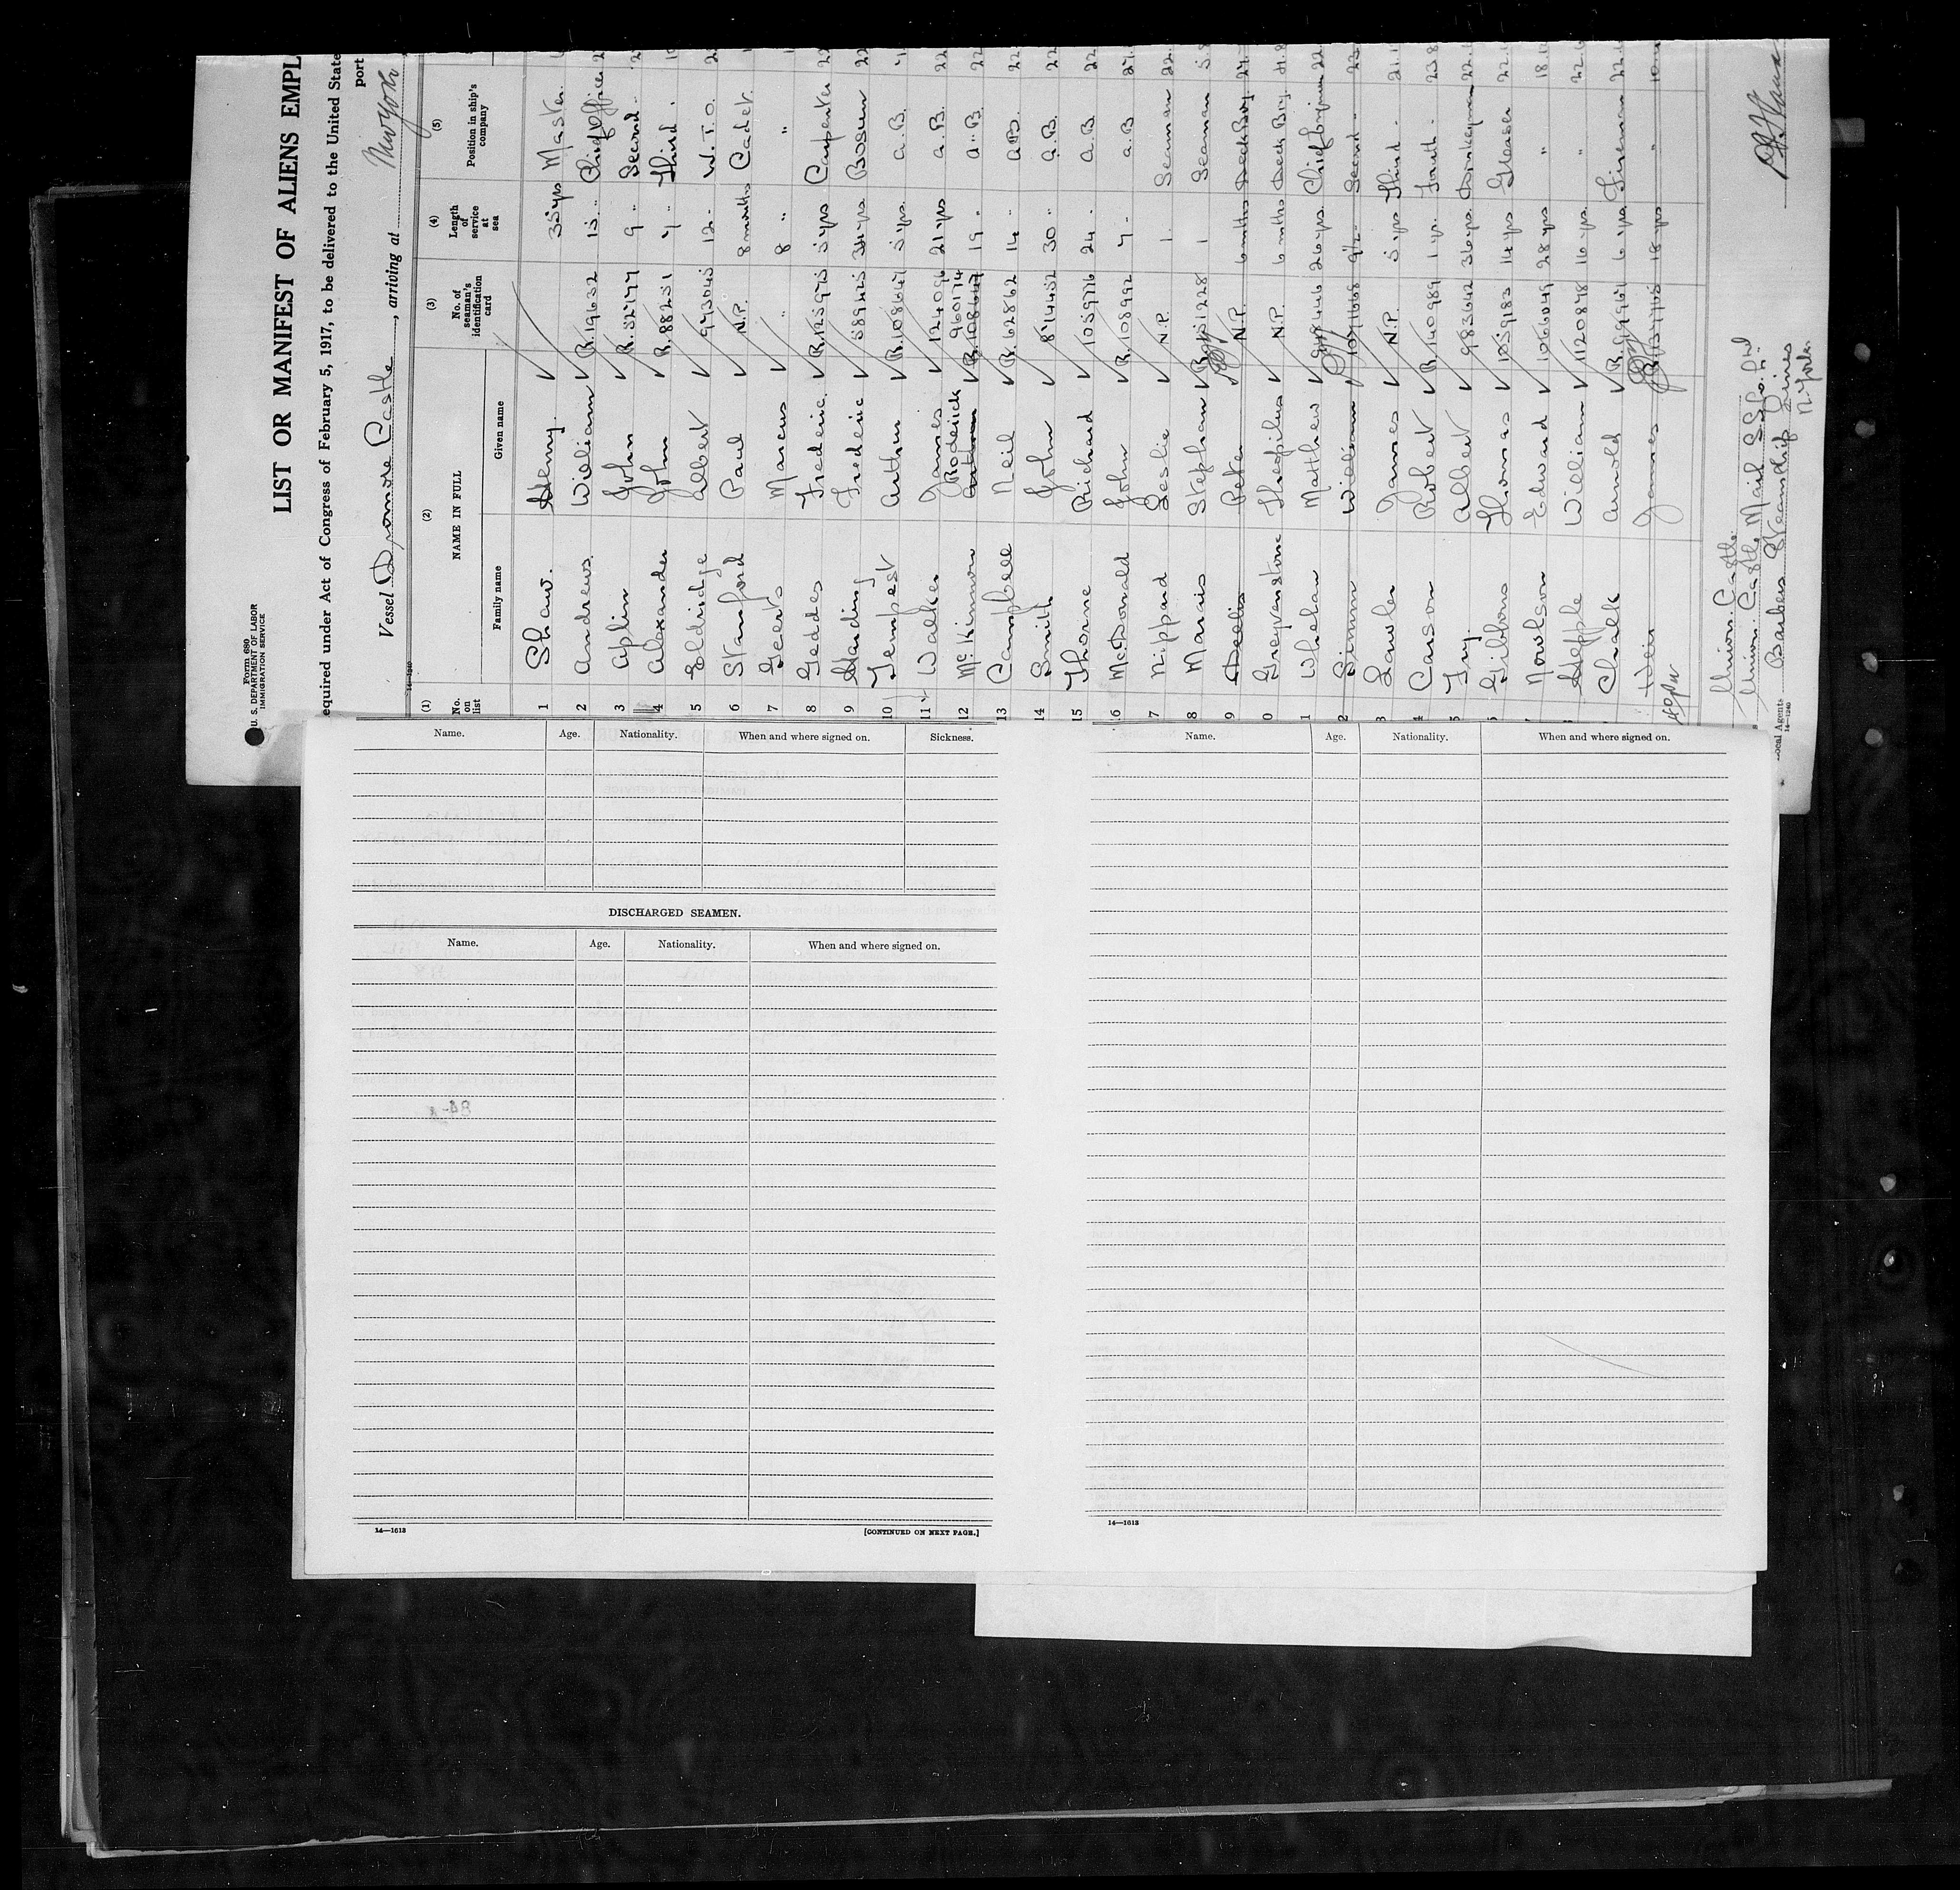 Form 680
U. S. DEPARTMENT OF LABOR
IMMIGRATION SERVICE
LIST OR MANIFEST OF ALIENS EMPL
equired under Act of Congress of February 5, 1917, to be delivered to the United State
port
Vessel Dromore Castle, arriving at New York
14-1240
(1) (2) (3) (4) (5)
No. on list NAME IN FULL No. of seaman's identification card Length of service at sea Position in ship's company
Family name Given name
1 Shaw. Henry. 35 yrs Master.
2 Andrews. William R.19632 15 " Chief Officer
3 Aplin John R.52777 9 " Second
4 Alexander John R.88251 7 - Third.
5 Eldridge Albert 973045 12 - W.T.O.
6 Stamford Paul N.P. 8 mnths Cadet
7 Geerts Marcus " 8 " "
8 Geddes Frederic R.125975 5 yrs Carpenter 22
9 Harding Frederic 589425 34 yrs Bosun 22
10 Tempest Arthur R.108647 5 yrs. A.B.
11 Walker James 124096 21 yrs A.B. 22
12 McKinnon Roderick 960174 19 - A.B. 22
13 Campbell Neil R.62862 14 - A.B. 22
14 Smith John 874452 30 - A.B. 22
15 Thorne Richard 1059776 24 - A.B 22
16 McDonald John R.108992 7 - A.B 27
7 Nippard Leslie N.P. 1 Seaman 22
8 Marais Stephan R.151228 1 Seaman
9 Peter N.P. 6 mnths Deck Boy
0 Greyvenstone Theophilus N.P. 6 mnths Deck Boy
1 Whelan Matthew 26 yrs. Chief Engineer 22
2 Simm William 1091668 9½ - Second - 22
3 Lawler James N.P. 5 yrs Third - 21
4 Carson Robert R.140989 1 yr. Fourth - 23
5 Fry. Albert 983642 36 yrs Donkeyman 22
6 Gibbons Thomas 1059183 14 yrs Greaser 22
7 Nowlson Edward 1066049 28 yrs " 18
8 Hepple William 1120878 16 yrs " 22
Chalk Arnold R.99967 6 yrs. Fireman 22
Weir James 18 yrs " 10
Union Castle
Union Castle Mail S.S. Co. Ltd
Local Agents Barber Steamship Lines
N. York
14-1240
Name. Age. Nationality. When and where signed on. Sickness.
DISCHARGED SEAMEN.
Name. Age. Nationality. When and where signed on.
14—1613 [CONTINUED ON NEXT PAGE.]
Name. Age. Nationality. When and where signed on.
14—1613